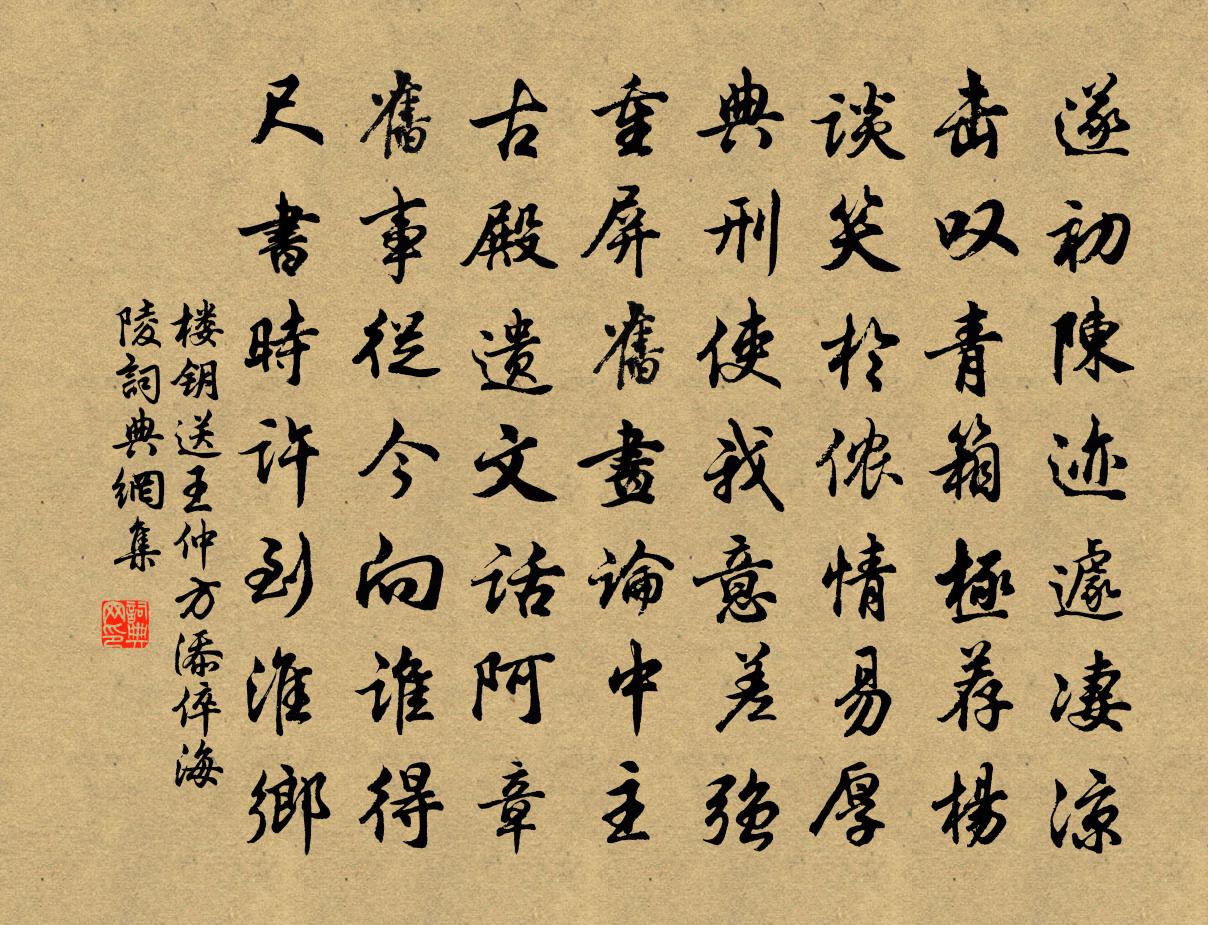 遂初陳迹遽凄涼
击叹青箱極荐楊
談笑於侬情易厚
典刑使我意差强
重屏舊畫論中主
古殿遗文話阿章
舊事從今向誰得
尺書時許到淮鄉
楼钥送王仲方添倅海
陵詞典網集
詞典网印